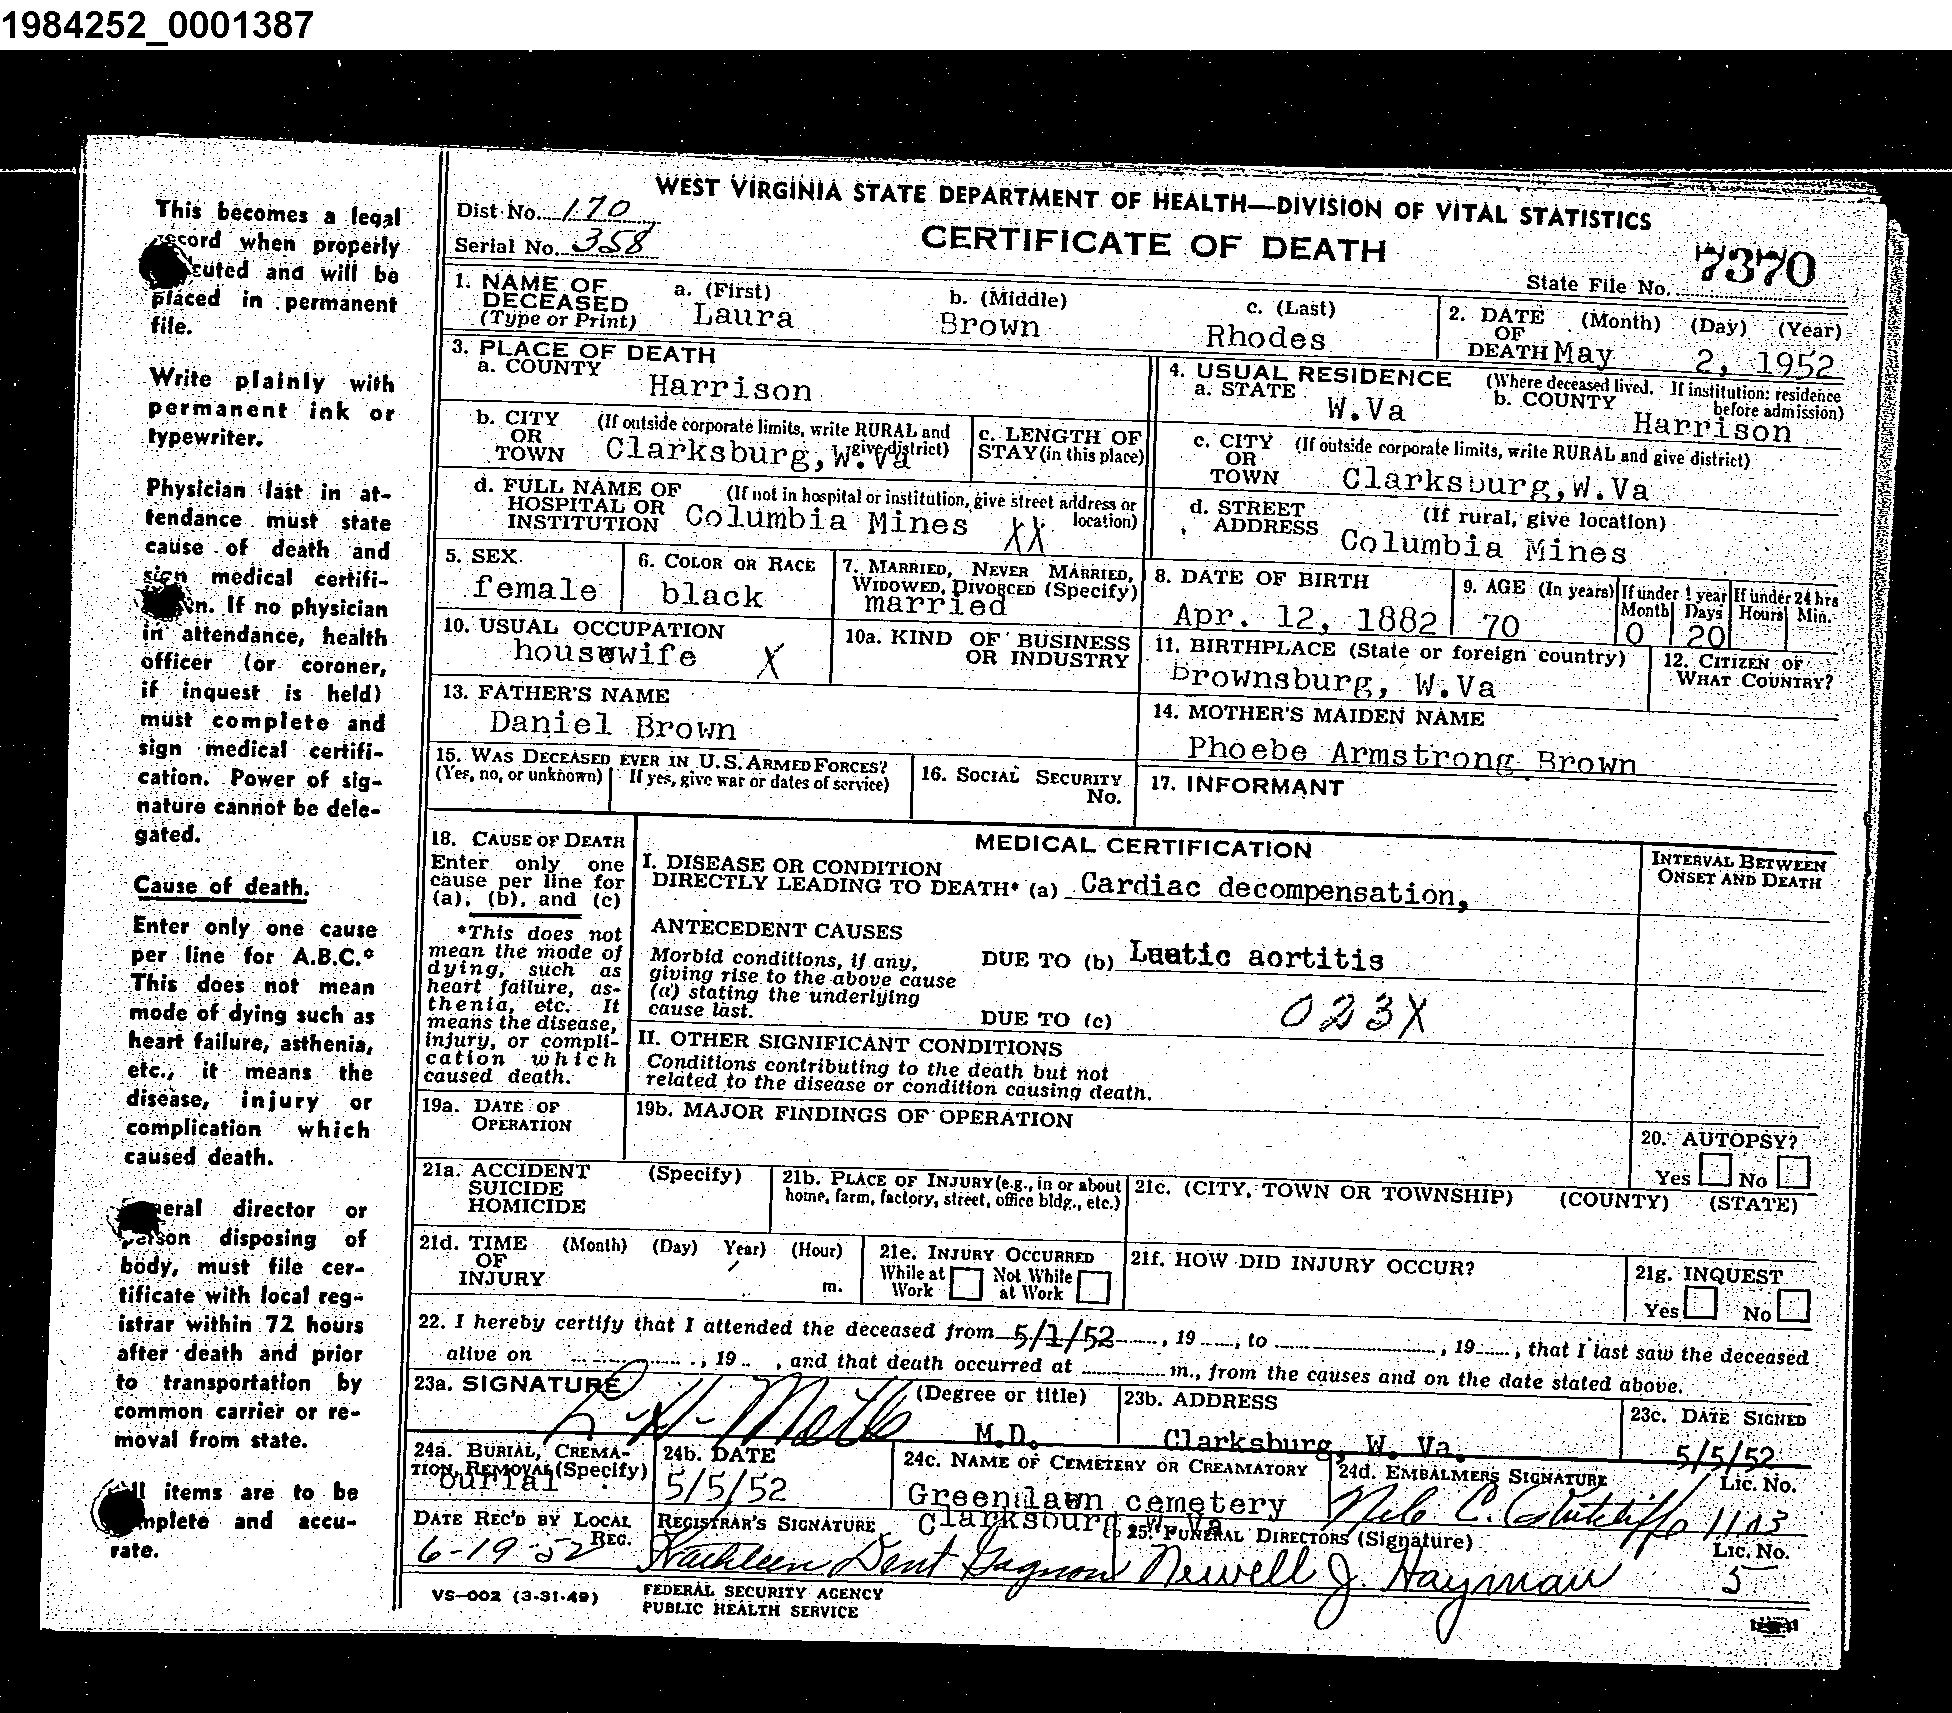 1984252_0001387
WEST VIRGINIA STATE DEPARTMENT OF HEALTH—DIVISION OF VITAL STATISTICS
CERTIFICATE OF DEATH
Dist. No. 170
Serial No. 358
State File No. 7370
This becomes a legal
record when properly
cuted and will be
placed in permanent
file.
Write plainly with
permanent ink or
typewriter.
Physician last in at-
tendance must state
cause of death and
sign medical certifi-
n. If no physician
in attendance, health
officer (or coroner,
if inquest is held)
must complete and
sign medical certifi-
cation. Power of sig-
nature cannot be dele-
gated.
Cause of death.
Enter only one cause
per line for A.B.C.*
This does not mean
mode of dying such as
heart failure, asthenia,
etc., it means the
disease, injury or
complication which
caused death.
neral director or
person disposing of
body, must file cer-
tificate with local reg-
istrar within 72 hours
after death and prior
to transportation by
common carrier or re-
moval from state.
All items are to be
mplete and accu-
rate.
1. NAME OF DECEASED (Type or Print)
a. (First) Laura
b. (Middle) Brown
c. (Last) Rhodes
2. DATE OF DEATH (Month) (Day) (Year) May 2, 1952
3. PLACE OF DEATH
a. COUNTY Harrison
4. USUAL RESIDENCE (Where deceased lived. If institution: residence before admission)
a. STATE W.Va
b. COUNTY Harrison
b. CITY OR TOWN (If outside corporate limits, write RURAL and give district) Clarksburg, W.Va
c. LENGTH OF STAY (in this place)
c. CITY OR TOWN (If outside corporate limits, write RURAL and give district) Clarksburg, W.Va
d. FULL NAME OF HOSPITAL OR INSTITUTION (If not in hospital or institution, give street address or location) Columbia Mines XX
d. STREET ADDRESS (If rural, give location) Columbia Mines
5. SEX female
6. COLOR OR RACE black
7. MARRIED, NEVER MARRIED, WIDOWED, DIVORCED (Specify) married
8. DATE OF BIRTH Apr. 12, 1882
9. AGE (In years) 70
If under 1 year Month 0 Days 20
If under 24 hrs Hours Min.
10. USUAL OCCUPATION housewife X
10a. KIND OF BUSINESS OR INDUSTRY
11. BIRTHPLACE (State or foreign country) Brownsburg, W.Va
12. CITIZEN OF WHAT COUNTRY?
13. FATHER'S NAME Daniel Brown
14. MOTHER'S MAIDEN NAME Phoebe Armstrong Brown
15. WAS DECEASED EVER IN U.S. ARMED FORCES? (Yes, no, or unknown) If yes, give war or dates of service)
16. SOCIAL SECURITY No.
17. INFORMANT
18. CAUSE OF DEATH
Enter only one
cause per line for
(a), (b), and (c)
*This does not
mean the mode of
dying, such as
heart failure, as-
thenia, etc. It
means the disease,
injury, or compli-
cation which
caused death.
MEDICAL CERTIFICATION
INTERVAL BETWEEN ONSET AND DEATH
I. DISEASE OR CONDITION
DIRECTLY LEADING TO DEATH* (a) Cardiac decompensation,
ANTECEDENT CAUSES
Morbid conditions, if any,
giving rise to the above cause
(a) stating the underlying
cause last.
DUE TO (b) Luetic aortitis
DUE TO (c) 023X
II. OTHER SIGNIFICANT CONDITIONS
Conditions contributing to the death but not
related to the disease or condition causing death.
19a. DATE OF OPERATION
19b. MAJOR FINDINGS OF OPERATION
20. AUTOPSY?
Yes No
21a. ACCIDENT SUICIDE HOMICIDE (Specify)
21b. PLACE OF INJURY (e.g., in or about home, farm, factory, street, office bldg., etc.)
21c. (CITY, TOWN OR TOWNSHIP) (COUNTY) (STATE)
21d. TIME OF INJURY (Month) (Day) Year) (Hour) m.
21e. INJURY OCCURRED While at Work Not While at Work
21f. HOW DID INJURY OCCUR?
21g. INQUEST Yes No
22. I hereby certify that I attended the deceased from 5/1/52, 19, to , 19, that I last saw the deceased
alive on , 19 , and that death occurred at m., from the causes and on the date stated above.
23a. SIGNATURE (Degree or title) M.D.
23b. ADDRESS Clarksburg, W. Va.
23c. DATE SIGNED 5/5/52
24a. BURIAL, CREMATION, REMOVAL (Specify) burial
24b. DATE 5/5/52
24c. NAME OF CEMETERY OR CREAMATORY Greenlawn cemetery Clarksburg W.Va
24d. EMBALMERS SIGNATURE Lic. No.
DATE REC'D BY LOCAL REG. 6-19-52
REGISTRAR'S SIGNATURE Kathleen Dent Gagnon
25. FUNERAL DIRECTORS (Signature) Newell J. Hayman
Lic. No. 5
VS-002 (3-31-49)
FEDERAL SECURITY AGENCY
PUBLIC HEALTH SERVICE